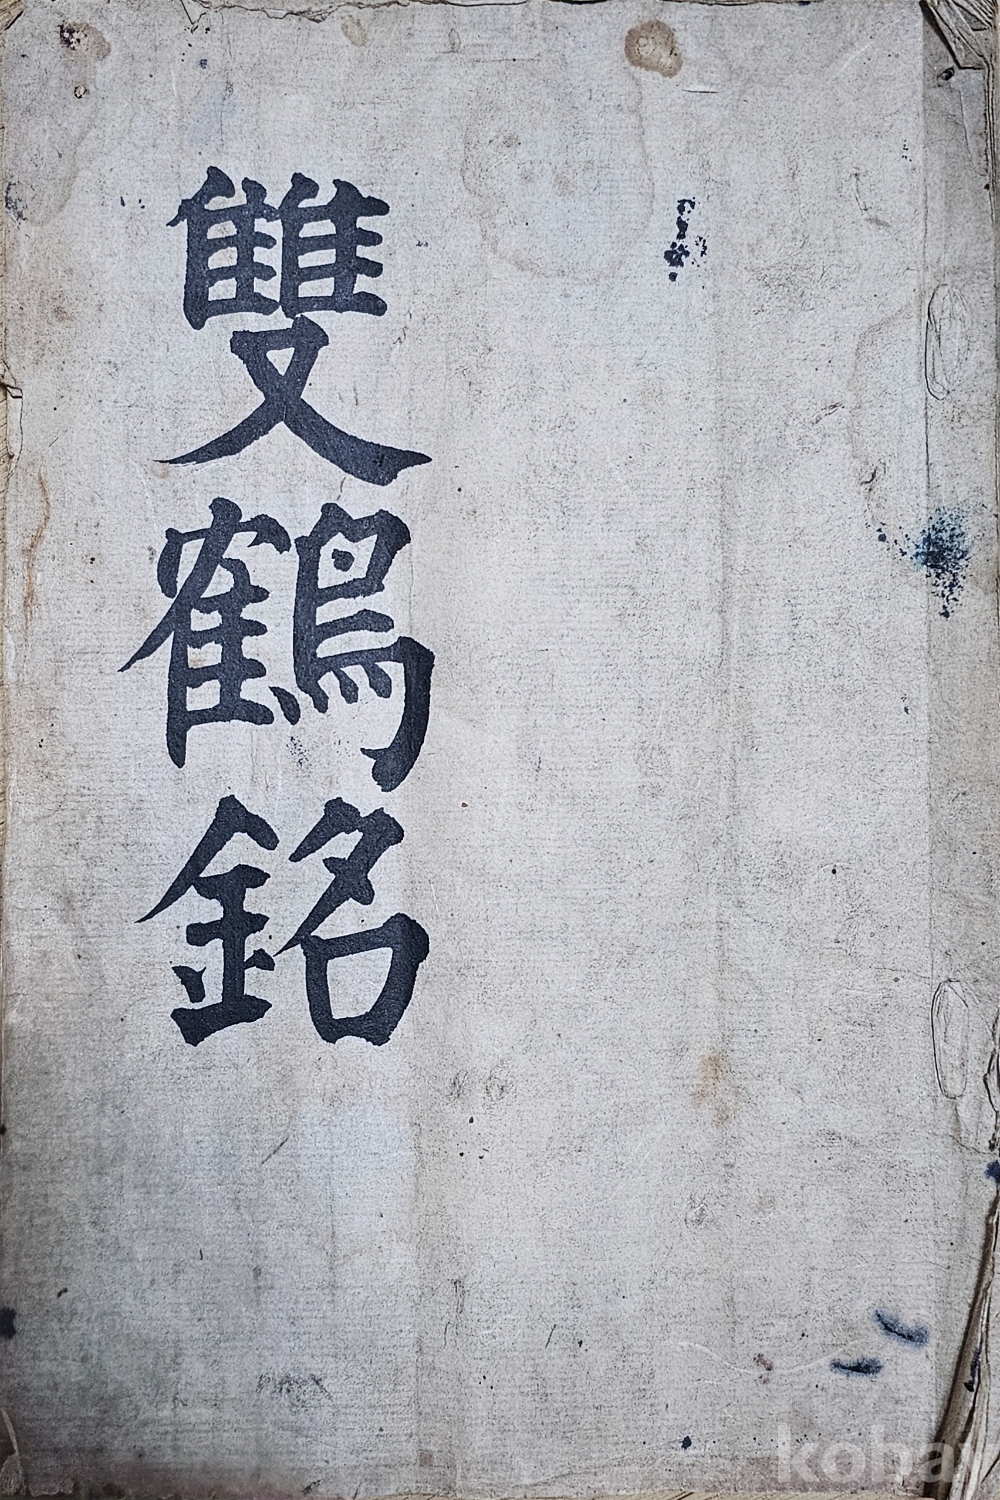 雙鶴銘
kobay